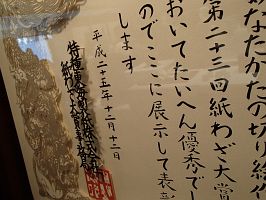 あなたがたの切り絵作
第二十三回紙わざ大賞
おいてたいへん優秀でし
のでここに展示して表彰
します
平成二十五年十二月十二日
特種東海製紙株式会社
紙わざ大賞